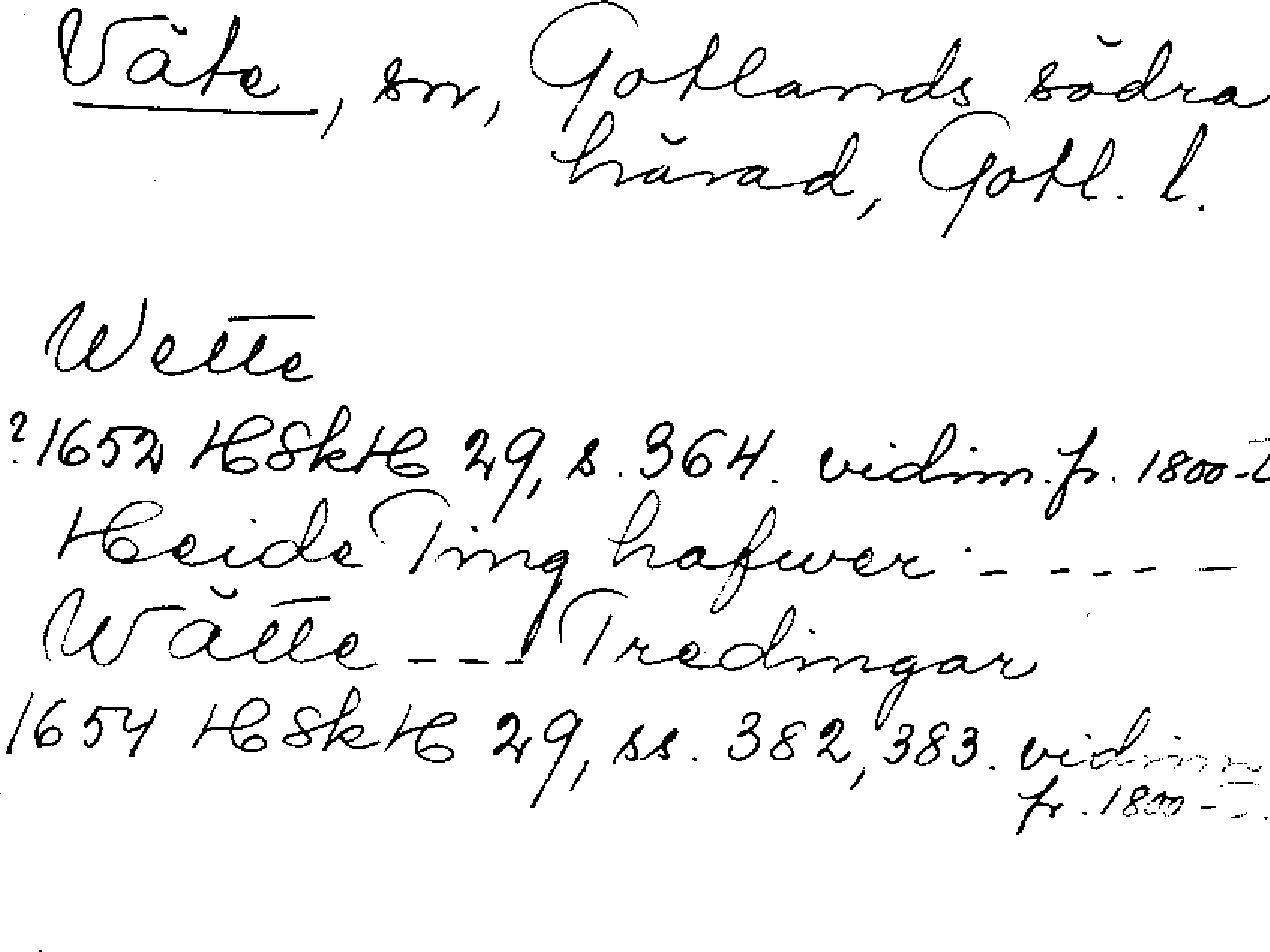 Väte, sn, Gotlands södra
härad, Gotl. l.
Wette
?1652 HSkH 29, s. 364. vidim. fr. 1800-
Heide Ting hafwer - - - - -
Wätte - - - Tredingar
1654 HSkH 29, ss. 382, 383. vidim
fr. 1800-